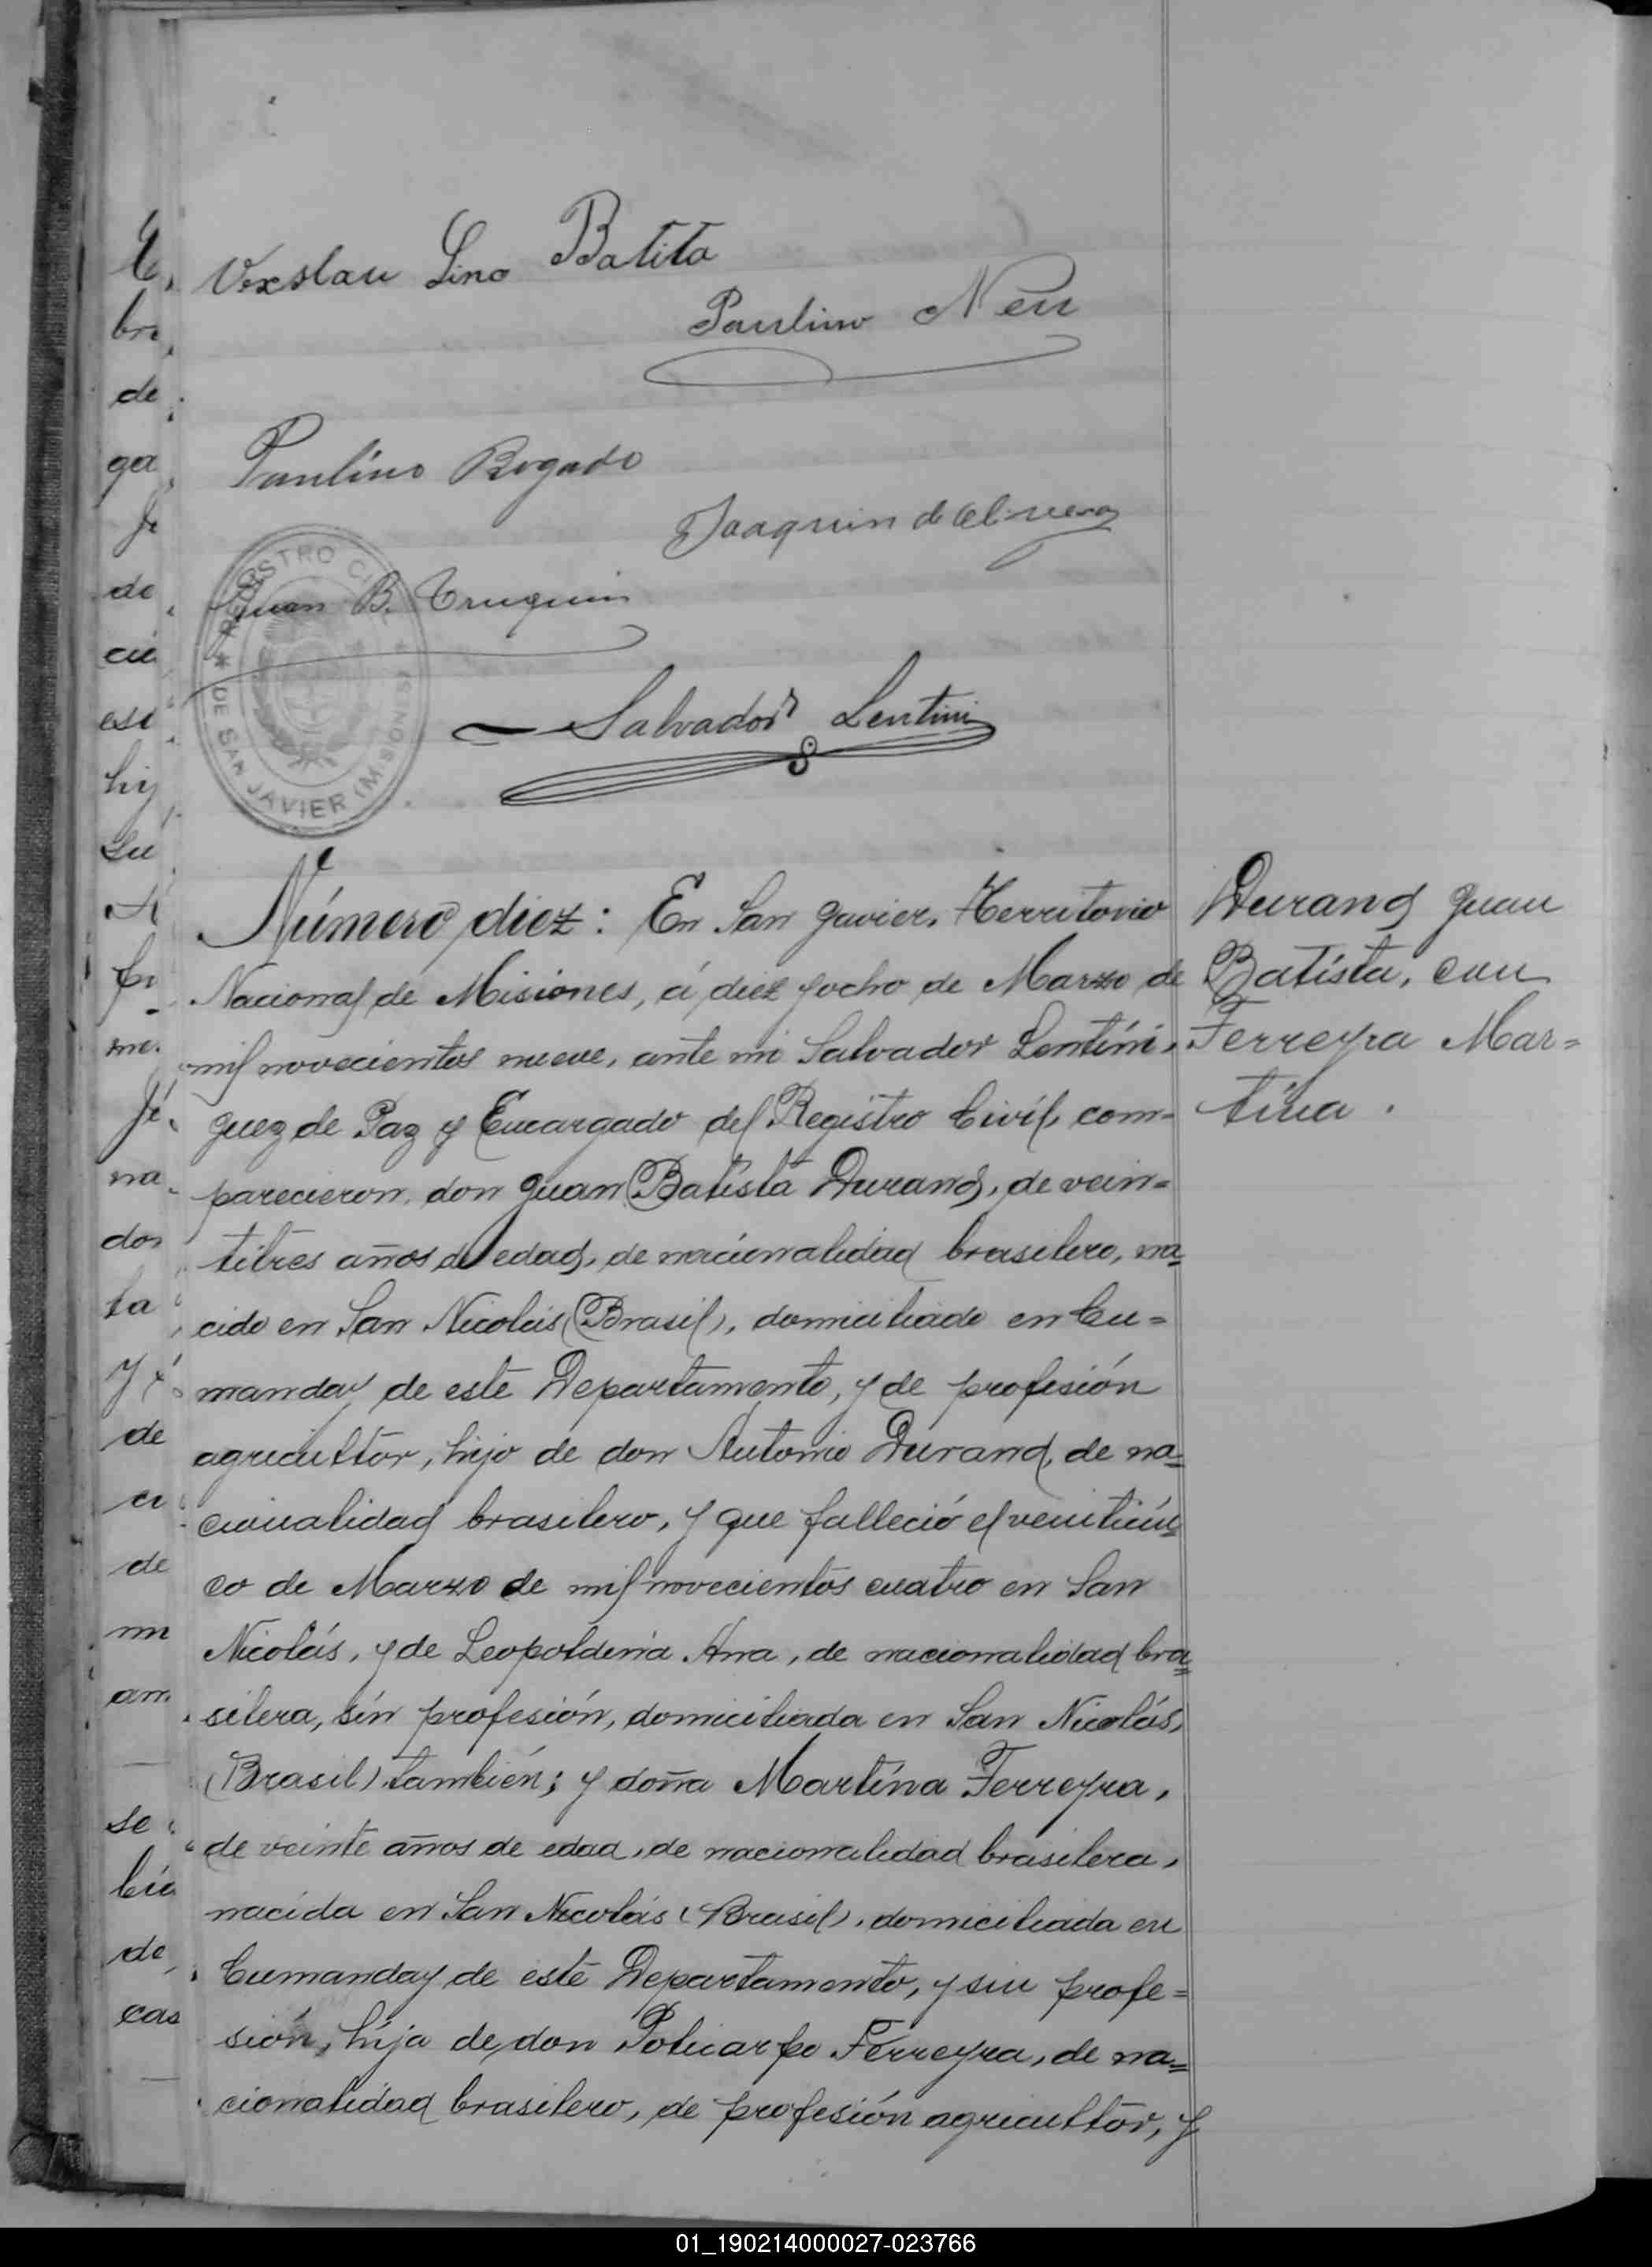 Vexslau Lino Batita
Paulino Neu
Paulino Bogado
Joaquin de
Juan B.
REGISTRO CIVIL
* DE SAN JAVIER (MISIONES) *
Salvador Lentini
Número diez: En San Javier, Territorio
Nacional de Misiones, á diez y ocho de Marzo de
mil novecientos nueve, ante mi Salvador Lentini,
Juez de Paz y Encargado del Registro Civil, com=
parecieron, don Juan Batista Durand, de vein=
titres años de edad, de nacionalidad brasilero, na=
cido en San Nicolás (Brasil), domiciliado en Cu=
manday de este Departamento, y de profesión
agricultor, hijo de don Antonio Durand, de na=
cionalidad brasilero, y que falleció el veinticin=
co de Marzo de mil novecientos cuatro en San
Nicolás, y de Leopoldina Ana, de nacionalidad bra=
silera, sin profesión, domiciliada en San Nicolás,
(Brasil) también; y doña Martina Ferreyra,
de veinte años de edad, de nacionalidad brasilera,
nacida en San Nicolás (Brasil), domiciliada en
Cumanday de este Departamento, y sin profe=
sión, hija de don Policarpo Ferreyra, de na=
cionalidad brasilero, de profesión agricultor, y
Durand Juan
Batista, con
Ferreyra Mar=
tina.
bre
de
ga
de
ciu
esi
hij
Lu
me
na
dos
ta
de
de
mi
am
se
de
cas
01_190214000027-023766